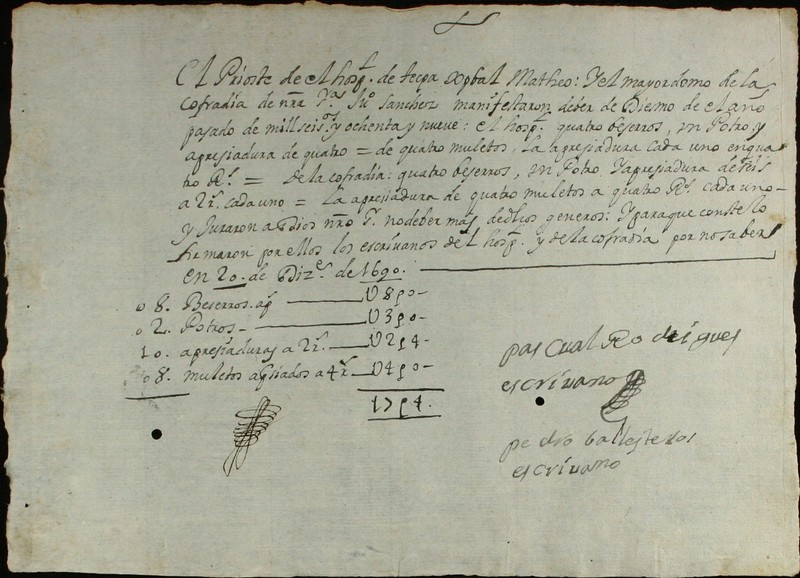 El Prioste de el hosp.l de tecpa Xpbal Matheo: Y el mayordomo de la
Cofradia de nra S.ra Ju.o Sanchez manifestaron deber de Diemo de el año
pasado de mill seis.s y ochenta y nueve: el hosp.l quatro beserros, un Potro: y
apresiadura de quatro = de quatro muletos, la apresiadura cada uno en qua
tro R.s = De la cofradia: quatro beserros, un Potro Y apresiadura de seis
a 2 r.s cada uno = La apresiadura de quatro muletos a quatro R.s cada uno -
y Juraron a Dios nro S.r no deber mas de dhos generos: Y para que conste lo
firmaron por ellos los escrivanos del hosp.l y de la cofradia por no saber
en 20. de Diz.e de 1690.
08. Beserros
02. Potros
10. apresiaduras a 2 r.s
08. muletos a 4 r.s
pascual Rodrigues
escrivano
pedro ballesteros
escrivano